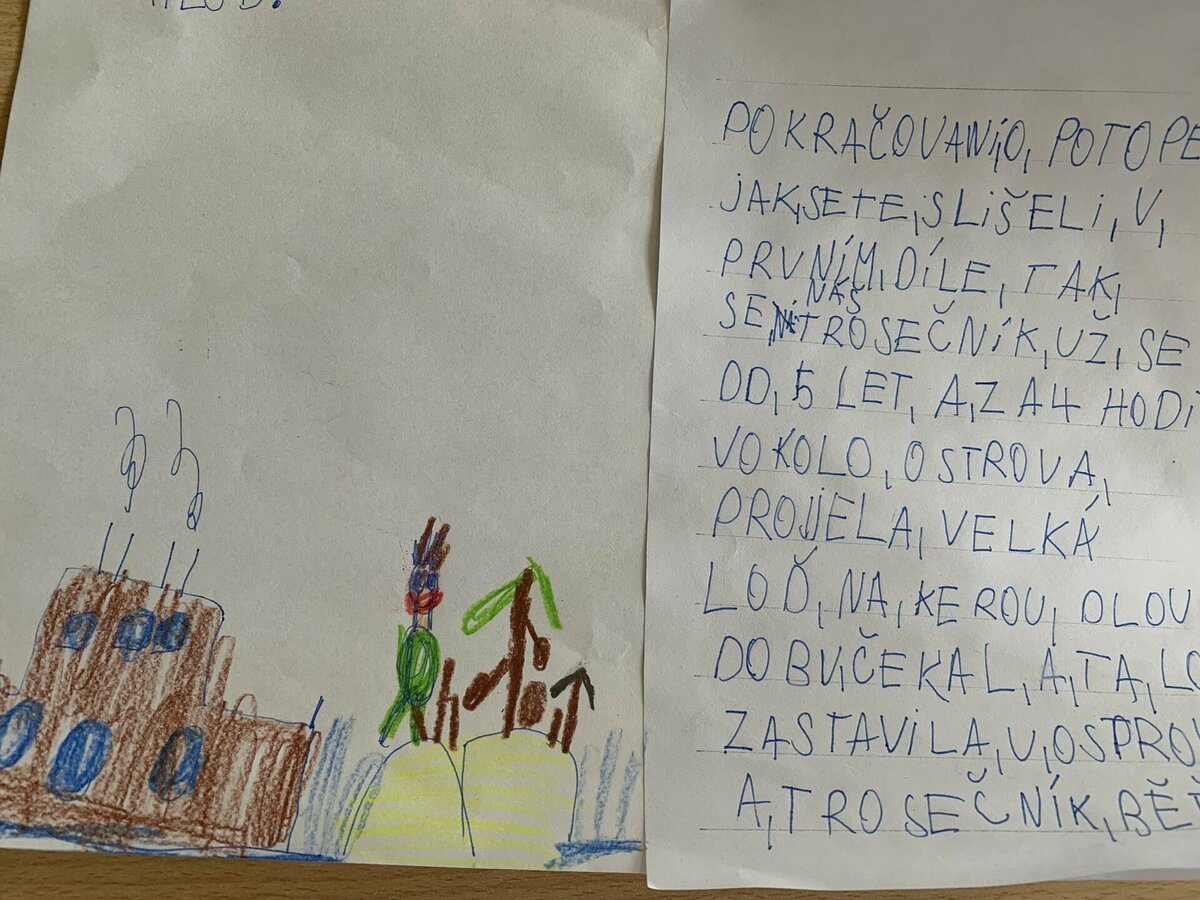 POKRAČOVANI,O, POTOPE
JAK,SETE,SLIŠELI,V,
PRVNÍM,DÍLE,TAK,
NÁŠ
SE, TROSEČNÍK,UŽ,SE
OD,5 LET, A,ZA4 HODI
VOKOLO,OSTROVA,
PROJELA,VELKÁ
LOĎ,NA,KEROU,DLOU
DOBUČEKAL,A,TA,LO
ZASTAVILA,U,OSTROV
A,TROSEČNÍK,BĚ